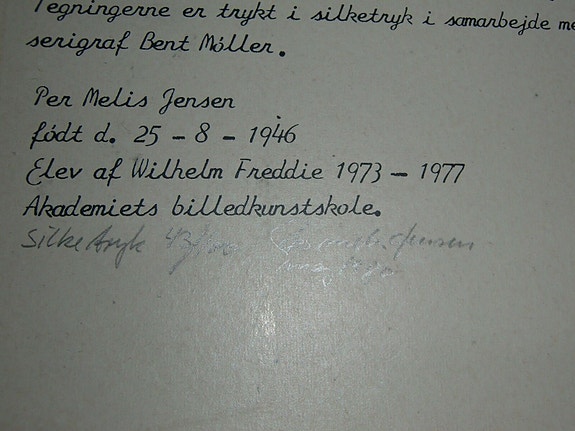 Tegningerne er trykt i silketryk i samarbejde me
serigraf Bent Móller.
Per Melis Jensen
fódt d. 25 - 8 - 1946
Elev af Wilhelm Freddie 1973 - 1977
Akademiets billedkunstskole.
Silketryk 43/100 Jensen